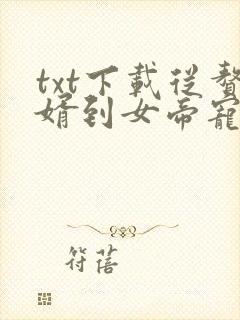 txt下載從贅
婿到女帝寵
符蓓